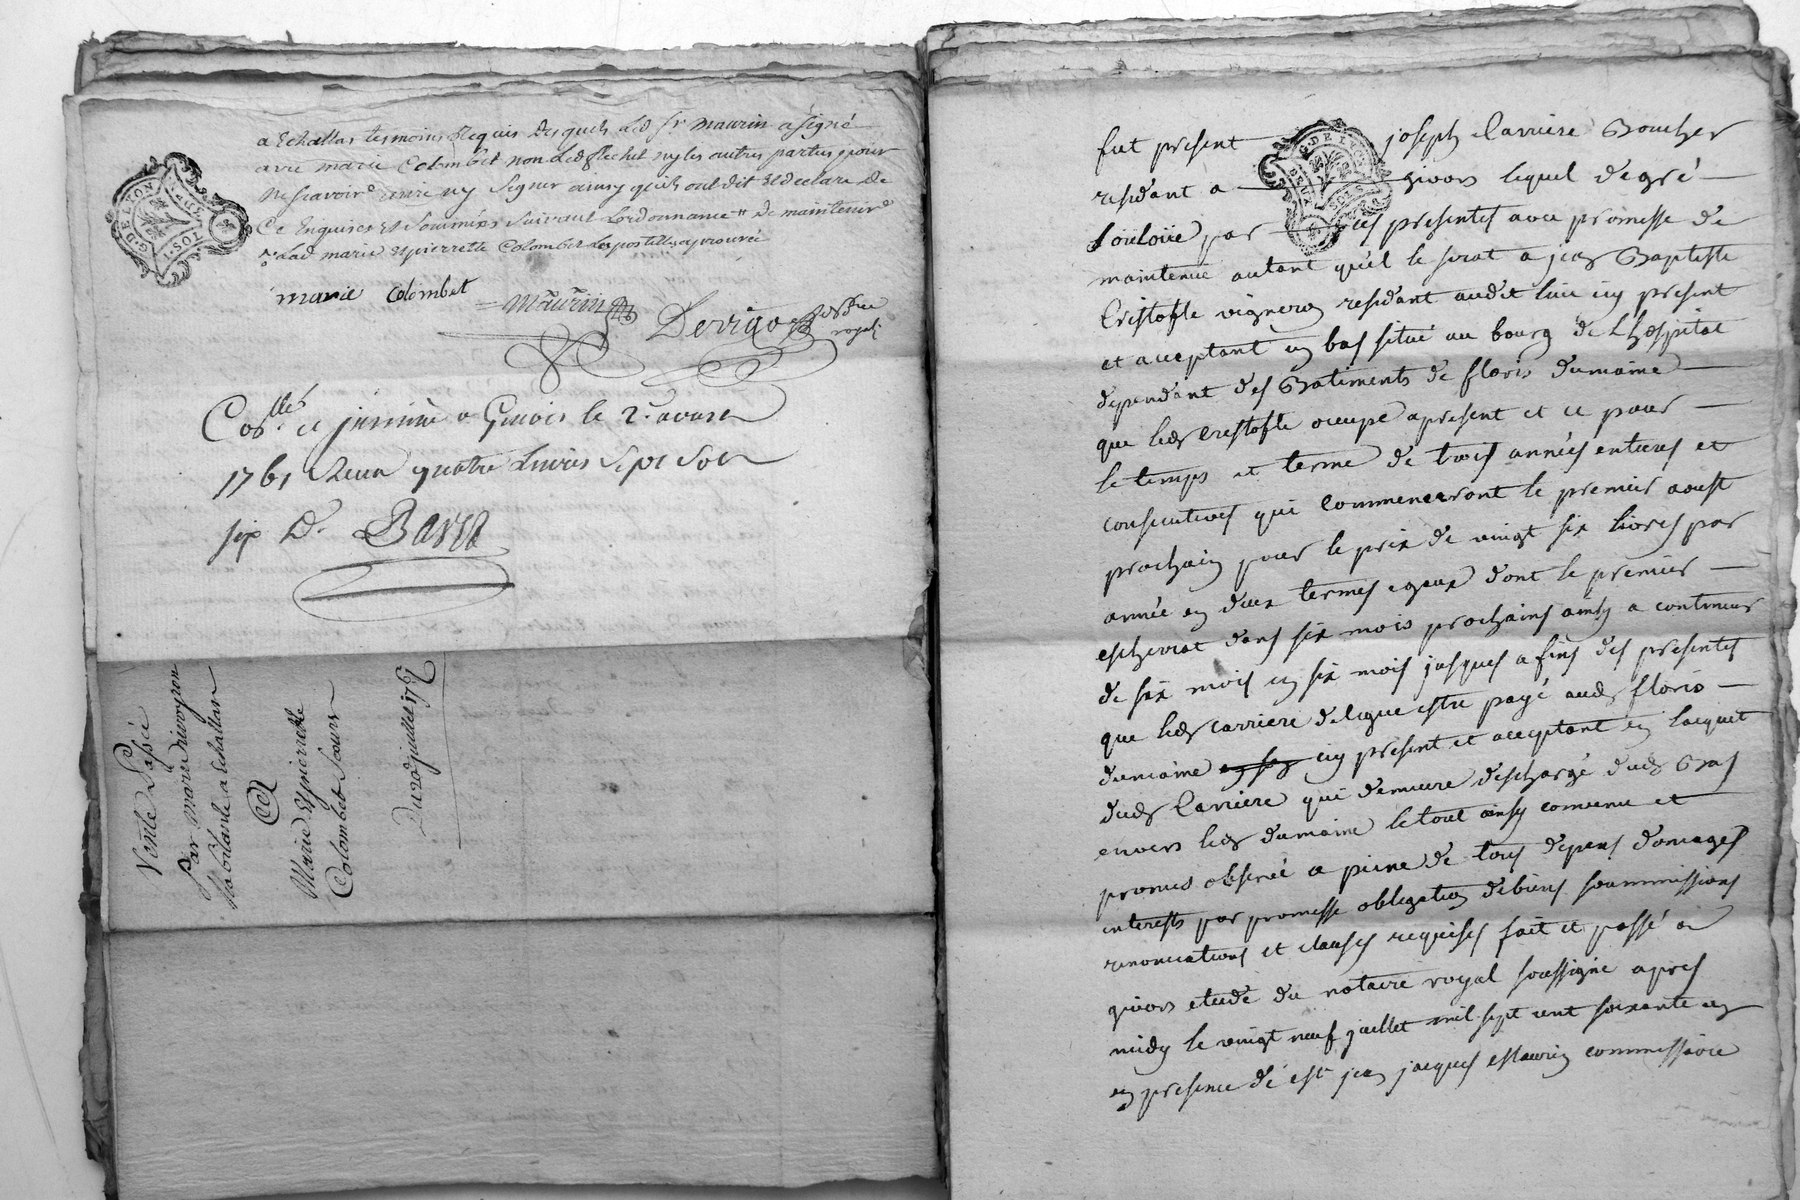 a Echallas tesmoins Requis desquels led Sr Maurin a signé
avec marie Colombet non led flechet ny les autres parties pour
ne scavoir ecrire ny signer ainsy quils ont dit et declaré de
Ce Enquises et sommées suivant Lordonnance de maintenir
lad marie et pierrette Colombet les postilles aprouvée
marie Colombet
Maurin
Dervieux
royal
G.DE LYON
DEUX
SOLS
Coslle et a Givors le 2. aoust
1761 Receu quatre Livres sept sols
six D.
Vente Passée
Par Marie
habitante a Echallas
a
Marie et pierrette
Colombet soeurs
Du 20e juillet 1761
G.DE LYON
DEUX
SOLS
fut present joseph Carriere Boucher
residant a givors lequel de gré
Loüe par ces presentes avec promesse de
maintenue autant qu'il le serat a jean Baptiste
Cristofle vigneron residant audit lieu icy present
et acceptant un bas situé au bourg de Lhospital
dependant des Batiments de floris dumaine
que led Cristofle occupe apresent et ce pour
le temps et terme de trois années entieres et
consecutives qui commenceront le premier aoust
prochain pour le prix de vingt six livres par
année en deux termes egaux dont le premier
eschevrat dans six mois prochains ainsy a continuer
de six mois en six mois jusques a fins des presentes
que led Carriere delegue estre payé aud floris
dumaine icy present et acceptant en lacquit
dud Carriere qui demeure deschargé dud Bas
envers led dumaine le tout ainsy convenu et
promis observé a peine de tous depens domages
interests par promesse obligation de biens soummissions
renonciations et clauses requises fait et passé a
givors etude du notaire royal soussigné apres
midy le vingt neuf juillet mil sept cent soixante un
en presence de jean jacques commissaire